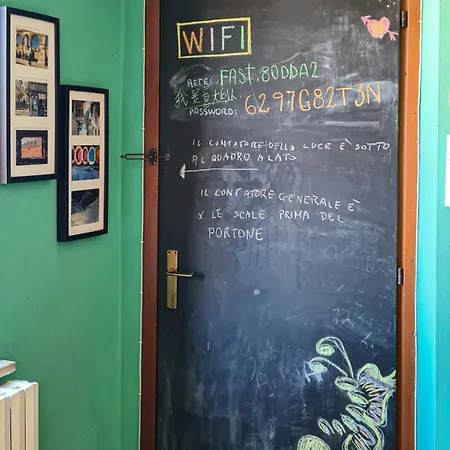 WIFI
RETE: FAST.80DDA2
我是意大利人
PASSWORD: 6297G82T3N
IL CONTATORE DELLA LUCE È SOTTO
AL QUADRO A LATO
IL CONTATORE GENERALE È
X LE SCALE PRIMA DEL
PORTONE